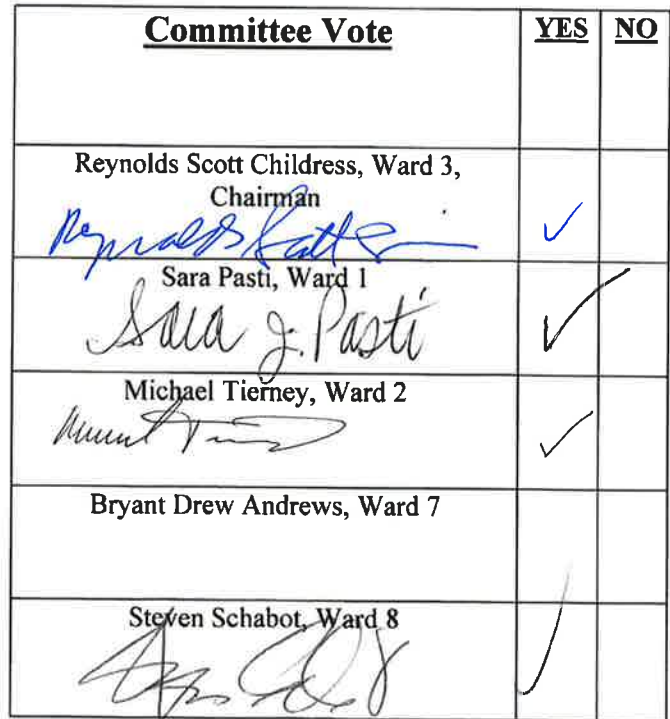 Committee Vote YES NO
Reynolds Scott Childress, Ward 3,
Chairman
Reynolds Scott ✓
Sara Pasti, Ward 1
Sara J. Pasti ✓
Michael Tierney, Ward 2
✓
Bryant Drew Andrews, Ward 7
Steven Schabot, Ward 8
✓